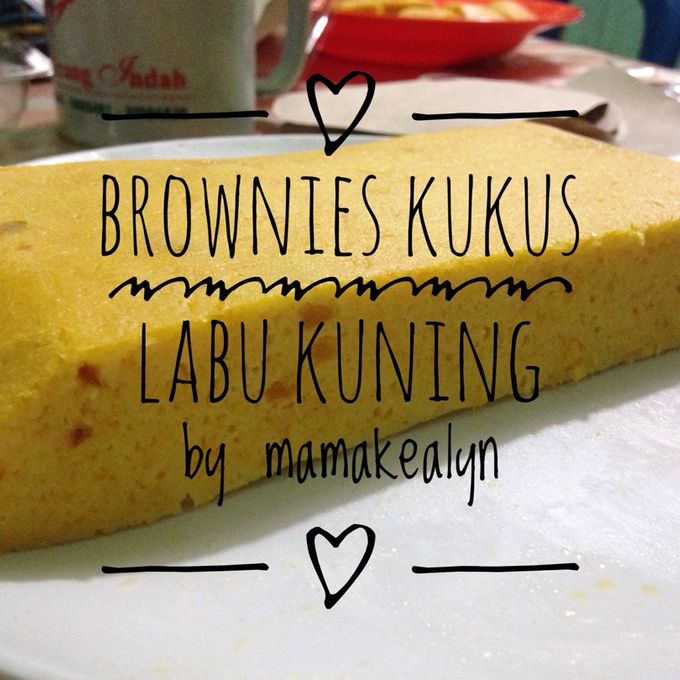 Indah
BROWNIES KUKUS
LABU KUNING
by mamakealyn